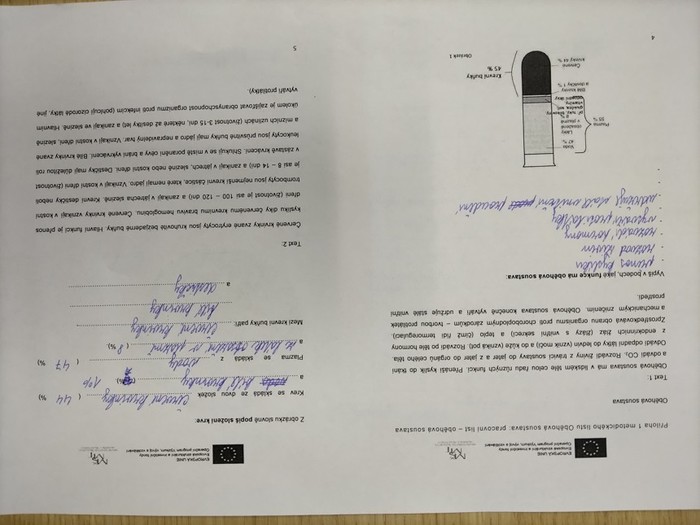 EVROPSKÁ UNIE
Evropské strukturální a investiční fondy
Operační program Výzkum, vývoj a vzdělávání
Příloha 1 metodického listu Oběhová soustava: pracovní list – oběhová soustava
Oběhová soustava
Text 1:
Oběhová soustava má v lidském těle celou řadu různých funkcí. Přenáší kyslík do tkání
a odvádí CO₂. Rozvádí živiny z trávicí soustavy do jater a z jater do orgánů celého těla.
Odvádí odpadní látky do ledvin (vznik moči) a do kůže (vznika pot). Rozvod po těle hormony
z endokrinních žláz (žlázy s vnitřní sekrecí) a teplo (čímž řídí termoregulaci).
Zprostředkovává obranu organismu proti choroboplodným zárodkům – tvorbou protilátek
a mechanickým zničením. Oběhová soustava konečně vytváří a udržuje stálé vnitřní
prostředí.
Vypiš v bodech, jaké funkce má oběhová soustava:
přenos kyslíku
· rozvod živin
· rozvádí hormony
· vytváří protilátky
· udržuje stálé vnitřní prostředí
Plazma
55 %
Voda 47 %
Látky
obsažené
v plazmě
8 %
Bílé krvinky
a destičky 1 %
Červené
krvinky 44 %
Krevní buňky
45 %
Obrázek 1
4
EVROPSKÁ UNIE
Evropské strukturální a investiční fondy
Operační program Výzkum, vývoj a vzdělávání
Z obrázku slovně popiš složení krve:
Krev se skládá ze dvou složek červené krvinky ( 44 %)
a bílé krvinky 1 %
Plazma se skládá z vody ( 47 %)
a z látek obsažené v plazmě ( 8 %)
Mezi krevní buňky patří červené krvinky
bílé krvinky
a destičky
Text 2:
Červené krvinky zvané erytrocyty jsou kruhovité bezjaderné buňky. Hlavní funkcí je přenos
kyslíku díky červenému krevnímu barvivu hemoglobinu. Červené krvinky vznikají v kostní
dřeni (životnost je asi 100 – 120 dní) a zanikají v játech a slezině. Krevní destičky neboli
trombocyty jsou nejmenší krevní částice, které nemají jádro. Vznikají v kostní dřeni (životnost
je asi 8 – 14 dní) a zanikají v játrech, slezině nebo kostní dřeni. Destičky mají důležitou roli
v zástavě krvácení. Shlukují se v místě poranění cévy a brání vykrvácení. Bílé krvinky zvané
leukocyty jsou průsvitné buňky mají jádro a nepravidelný tvar. Vznikají v kostní dřeni, slezině
a mízních uzlinách (životnost 3-15 dní, některé až desítky let) a zanikají ve slezině. Hlavním
úkolem je zajišťovat obranyschopnost organizmu proti infekcím (pohlcují cizorodé látky, jiné
vytváří protilátky).
5